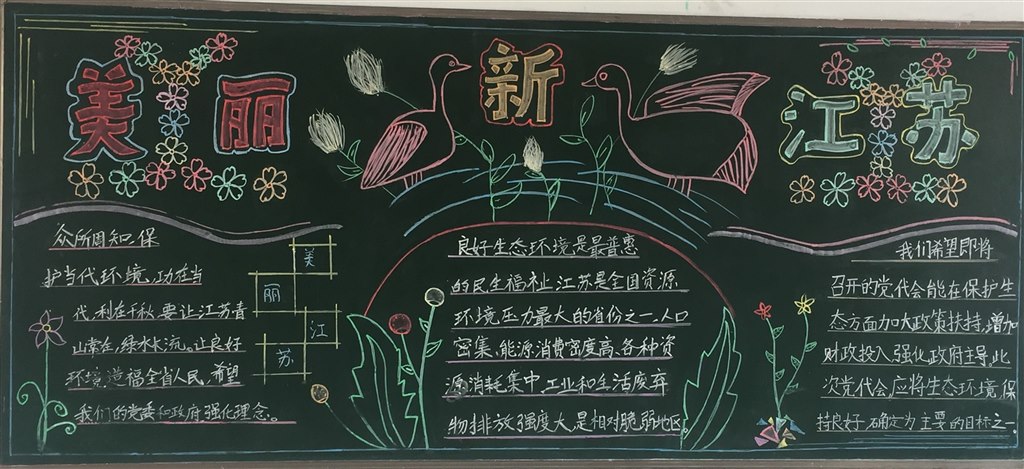 美丽新江苏
众所周知,保
护当代环境,功在当
代,利在千秋,要让江苏青
山常在,绿水长流。让良好
环境造福全省人民,希望
我们的党委和政府强化理念。
美
丽
江
苏
良好生态环境是最普惠
的民生福祉,江苏是全国资源
环境压力最大的省份之一,人口
密集,能源消费密度高,各种资
源消耗集中,工业和生活废弃
物排放强度大,是相对脆弱地区。
我们希望即将
召开的党代会能在保护生
态方面加大政策扶持,增加
财政投入,强化政府主导,此
次党代会,应将生态环境保
持良好,确定为主要的目标之一